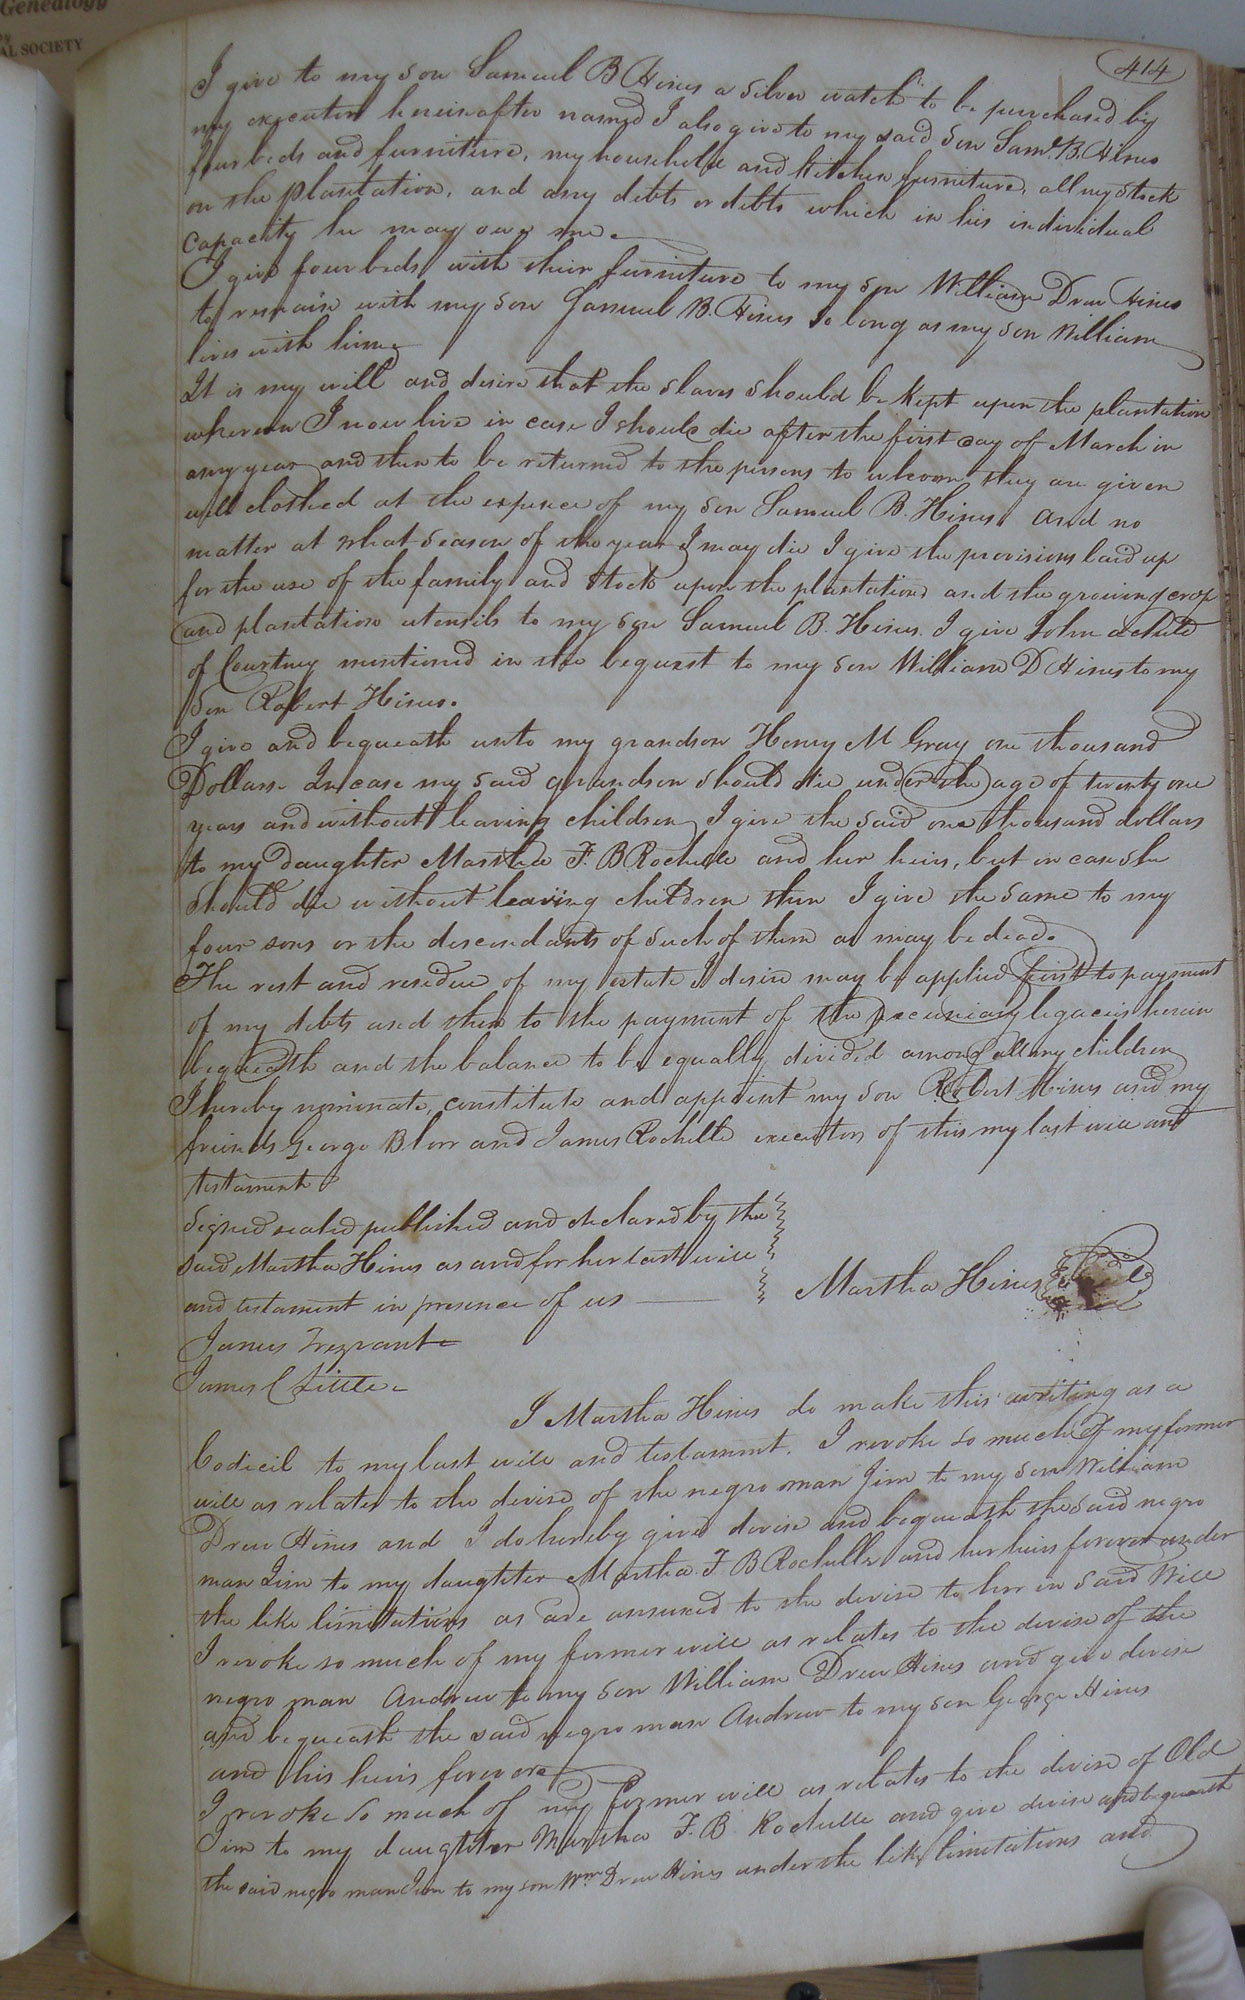 Genealogy
AL SOCIETY
414
I give to my son Samuel B Hines a silver watch to be purchased by
my executor hereinafter named I also give to my said son Saml. B. Hines
four beds and furniture, my household and kitchen furniture, all my stock
on the plantation, and any debts or debts which in his individual
capacity he may owe me.
I give four beds with their furniture to my son William Drew Hines
to remain with my son Samuel B. Hines so long as my son William
lives with him.
It is my will and desire that the slaves should be kept upon the plantation
whereon I now live in case I should die after the first day of March in
any year and then to be returned to the persons to whom they are given
well clothed at the expence of my son Samuel B. Hines. And no
matter at what season of the year I may die I give the provisions laid up
for the use of the family and stock upon the plantation and the growing crop
and plantation utensils to my son Samuel B. Hines. I give John a child
of Courtney mentioned in the bequest to my son William D Hines to my
Son Robert Hines.
I give and bequeath unto my grandson Henry M Gray one thousand
Dollars. In case my said grandson should die under the age of twenty one
years and without leaving children I give the said one thousand dollars
to my daughter Martha F. B Rochelle and her heirs, but in case she
should die without leaving children then I give the same to my
four sons or the descendants of such of them as may be dead.
The rest and residue of my estate I desire may be applied first to payment
of my debts and then to the payment of the pecuniary legacies herein
bequeath and the balance to be equally divided among all my children
I hereby nominate, constitute and appoint my son Robert Hines and my
friends George B. Cerr and James Rochelle executors of this my last will and
testament
Signed sealed published and declared by the
said Martha Hines as and for her last will
and testament in presence of us
Martha Hines Seal
James Trezvant
James C Little
I Martha Hines do make this writing as a
Codicil to my last will and testament. I revoke so much of my former
will as relates to the devise of the negro man Jim to my son William
Drew Hines and I do hereby give devise and bequeath the said negro
man Jim to my daughter Martha F B Rochelle and her heirs forever under
the like limitations as are annexed to the devise to her in said Will
I revoke so much of my former will as relates to the devise of the
negro man Andrew to my son William Drew Hines and give devise
and bequeath the said negro man Andrew to my son George Hines
and his heirs forever
I revoke so much of my former will as relates to the devise of Old
Jim to my daughter Martha F. B. Rochelle and give devise and bequeath
the said negro man Jim to my son Wm Drew Hines under the like limitations and